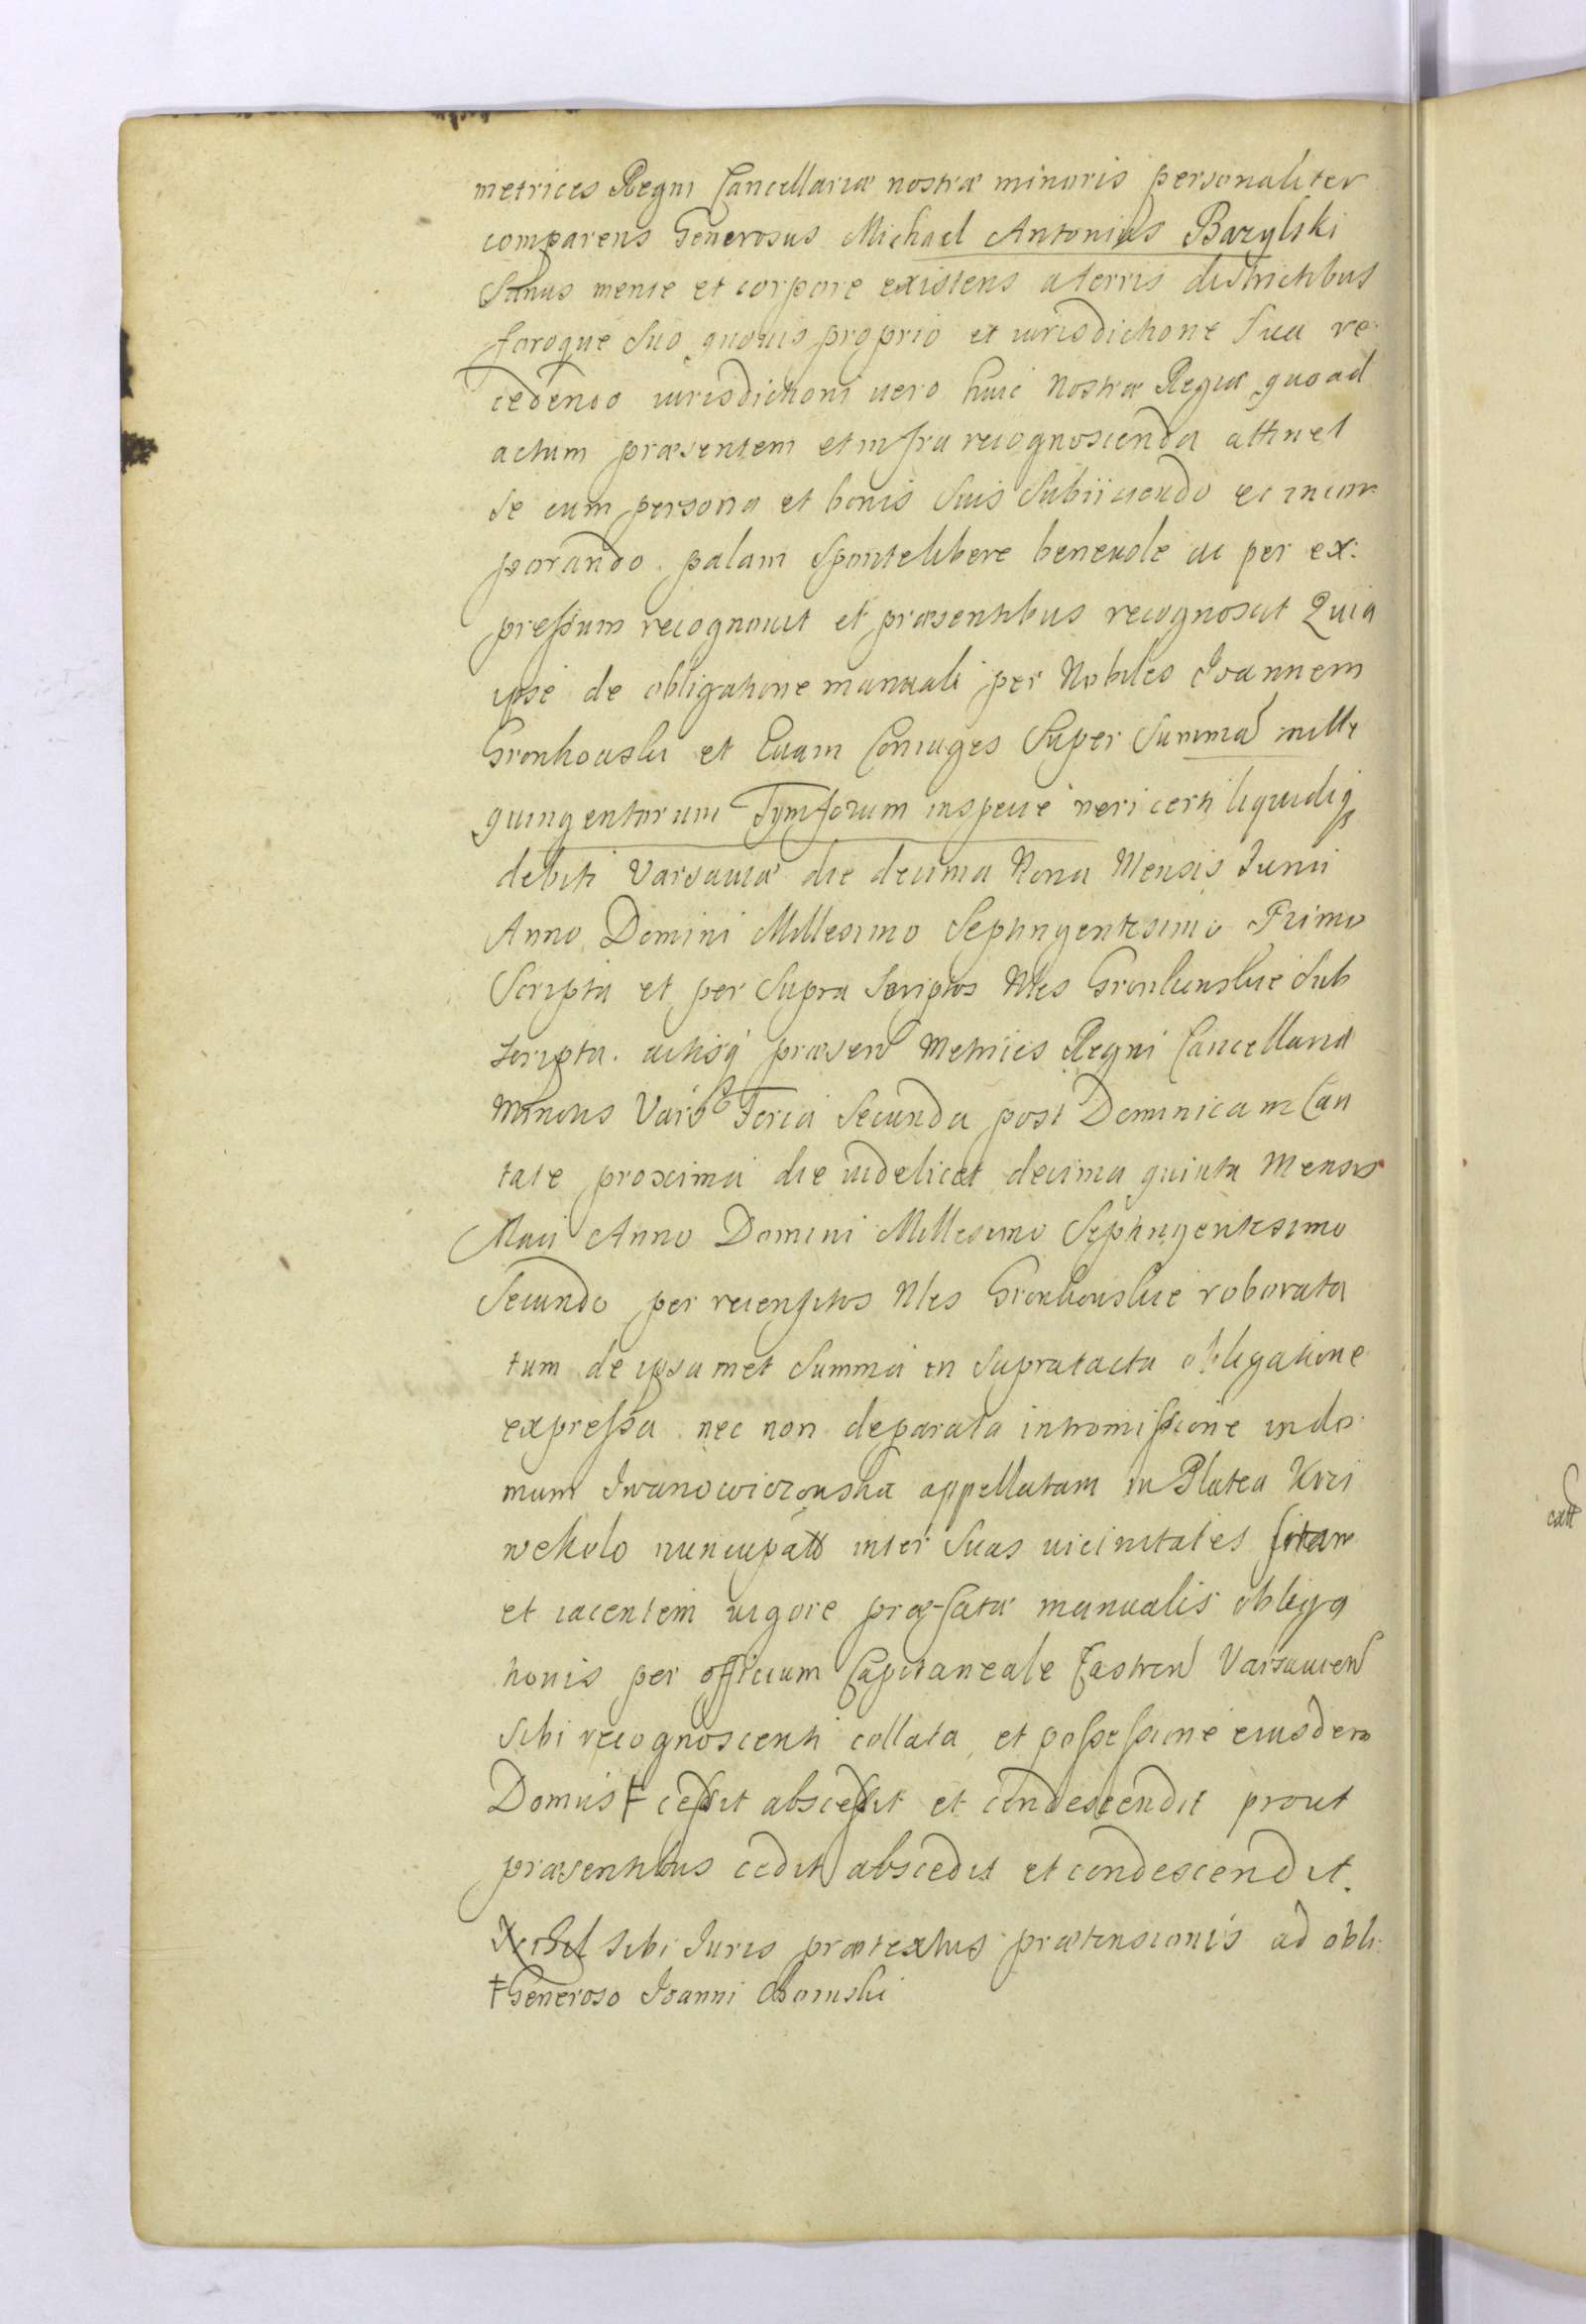 metrices Regni Cancellariæ nostræ minoris personaliter
comparens Generosus Michael Antonius Bazylski
Sanus mente et corpore existens a terris districtibus
foroque suo quovis proprio et iurisdictione sua re:
cedendo iurisdictioni vero huic Nostræ Regiæ quoad
actum præsentem et infra recognoscenda attinet
se cum persona et bonis suis subiiciendo et incor:
porando. palam sponte libere benevole ac per ex:
pressum recognovit et præsentibus recognoscit Quia
ipse de obligatione manuali per Nobiles Joannem
Gronkouski et Evam Coniuges super summa mille
quingentorum Tymforum in specie veri certi liquidiq
debiti Varsaviæ die decima Nona Mensis Junii
Anno Domini Millesimo Septingentesimo Primo
Scripta et per supra scriptos Nles Gronkouskie sub
scripta. actisq præsen Metrices Regni Cancellariæ
Minoris Vars Feria Secunda post Dominicam Can
tate proxima die videlicet decima quinta Mensis
Maii Anno Domini Millesimo Septingentesimo
Secundo per recensitos Nles Gronkouskie roborata
tum de ipsamet summa in supratacta obligatione
expressa nec non de parata intromissione in do:
mum Iwanowiczouska appellatam in Platea Krzi
wekolo nuncupat inter suas vicinitates sitam
et iacentem vigore præfatæ manualis obliga
tionis per officium Capitaneale Castren Varsavien
sibi recognoscenti collata et possessione eiusdem
Domus ⸸ cessit abscessit et condescendit prout
præsentibus cedit abscedit et condescendit.
Nihil sibi Juris prætextus prætensionis ad obli:
⸸ Generoso Joanni